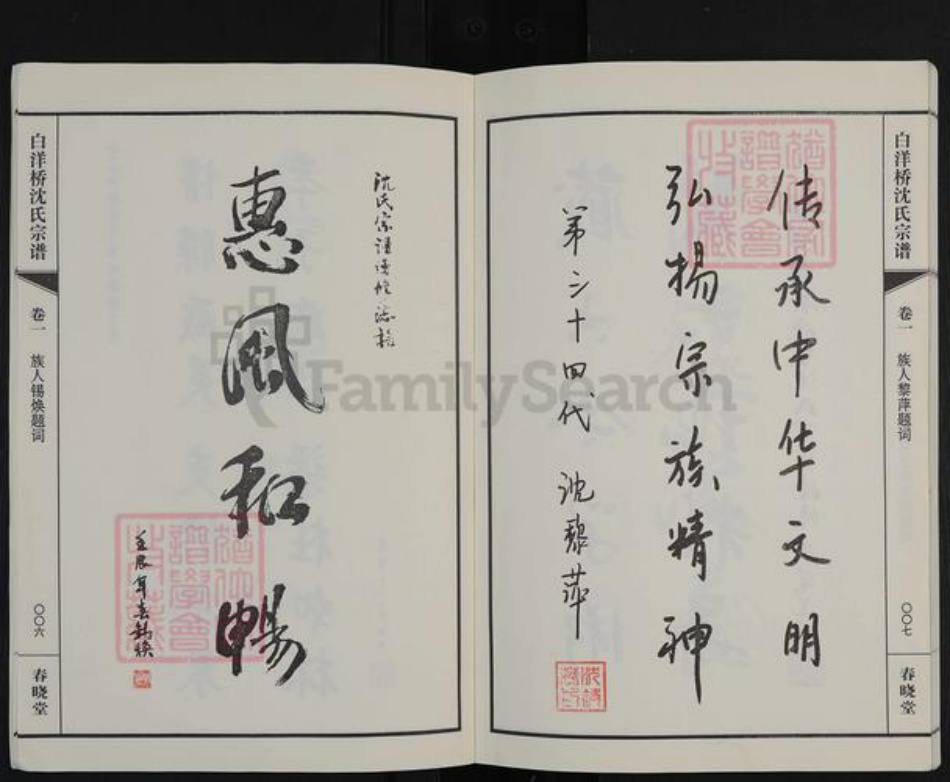 白洋桥沈氏宗谱
卷一
族人黎萍题词
〇〇七
春晓堂
传承中华文明
弘揚宗族精神
第三十四代 沈黎萍
沈氏宗谱续修志禧
惠风和畅
壬辰年春锡焕
白洋桥沈氏宗谱
卷一
族人锡焕题词
〇〇六
春晓堂
FamilySearch